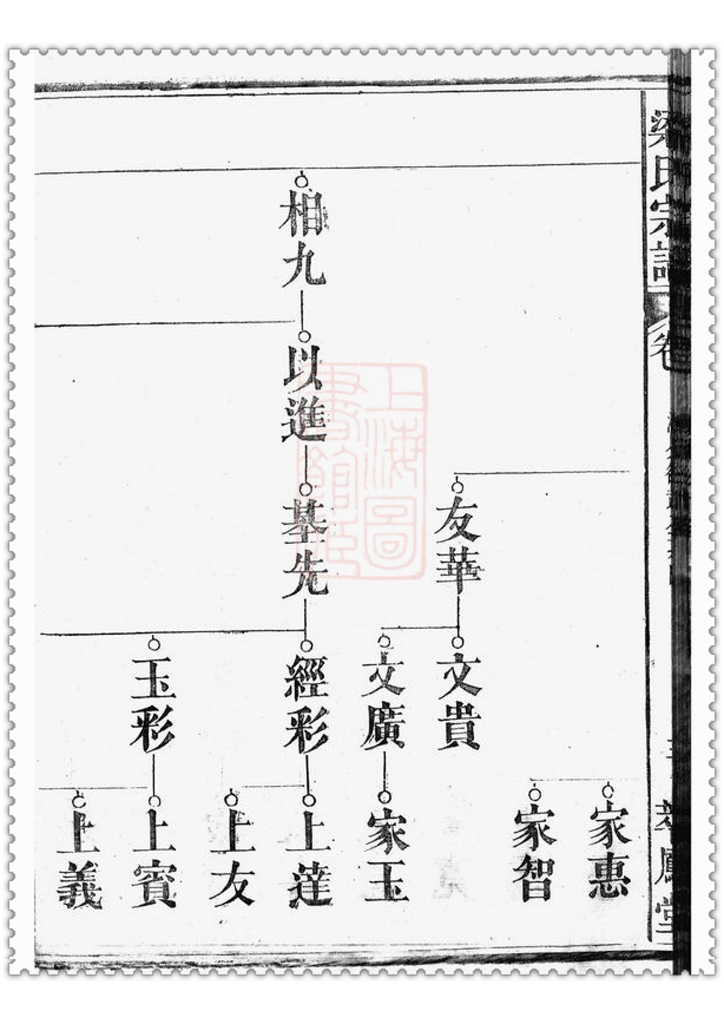 梁氏宗譜
卷
鳳堂
家惠
家智
友華
文貴
文廣
家玉
相九
以進
基先
經彩
上達
上友
玉彩
上賓
上義
上海圖
書館藏